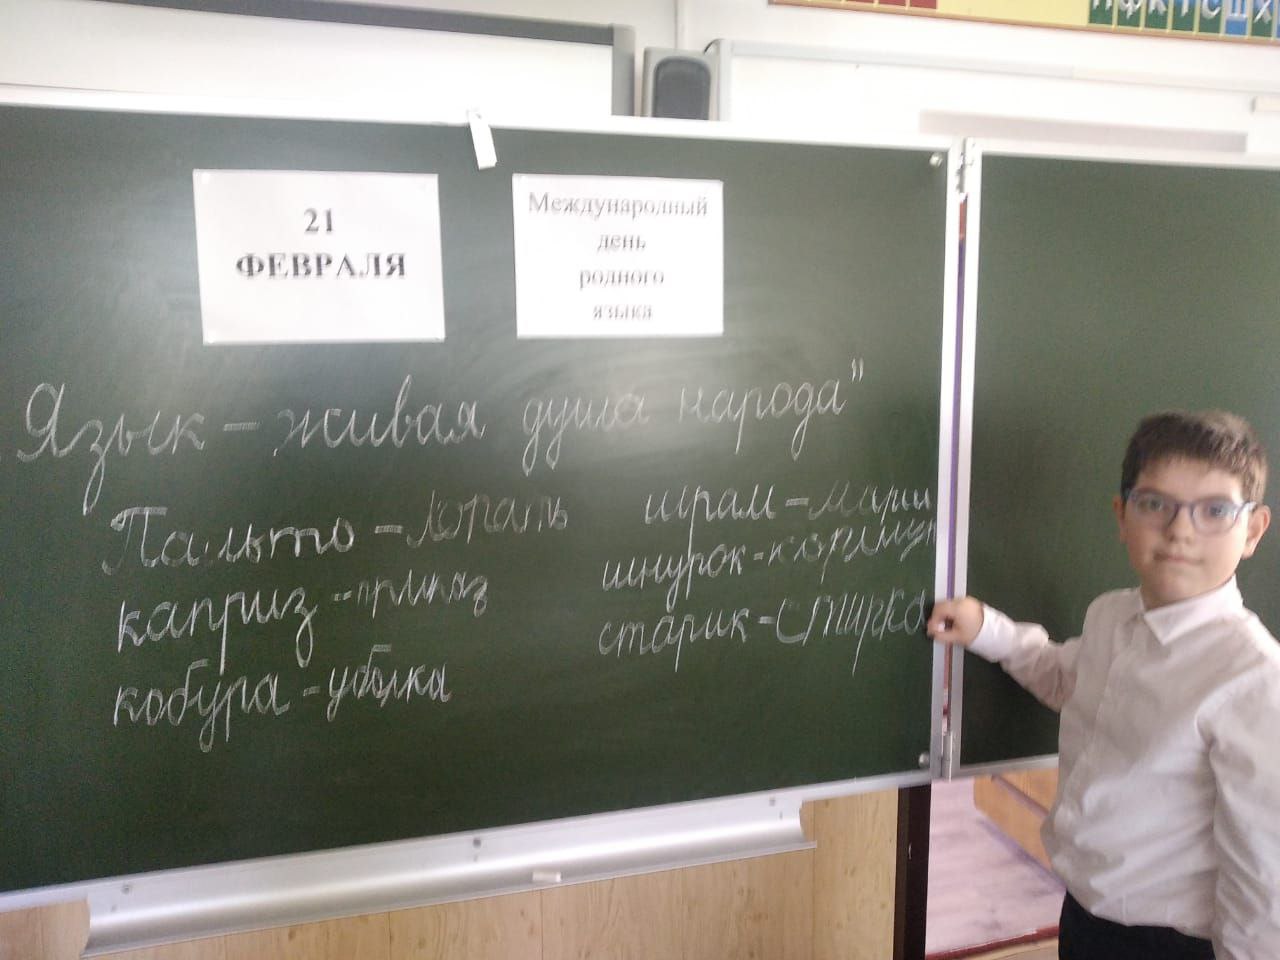 21
ФЕВРАЛЯ
Международный
день
родного
языка
Язык – живая душа народа"
Пальто – лопать
каприз – приказ
кобура – уборка
шрам – марш
шнурок – коршун
старик – стирка